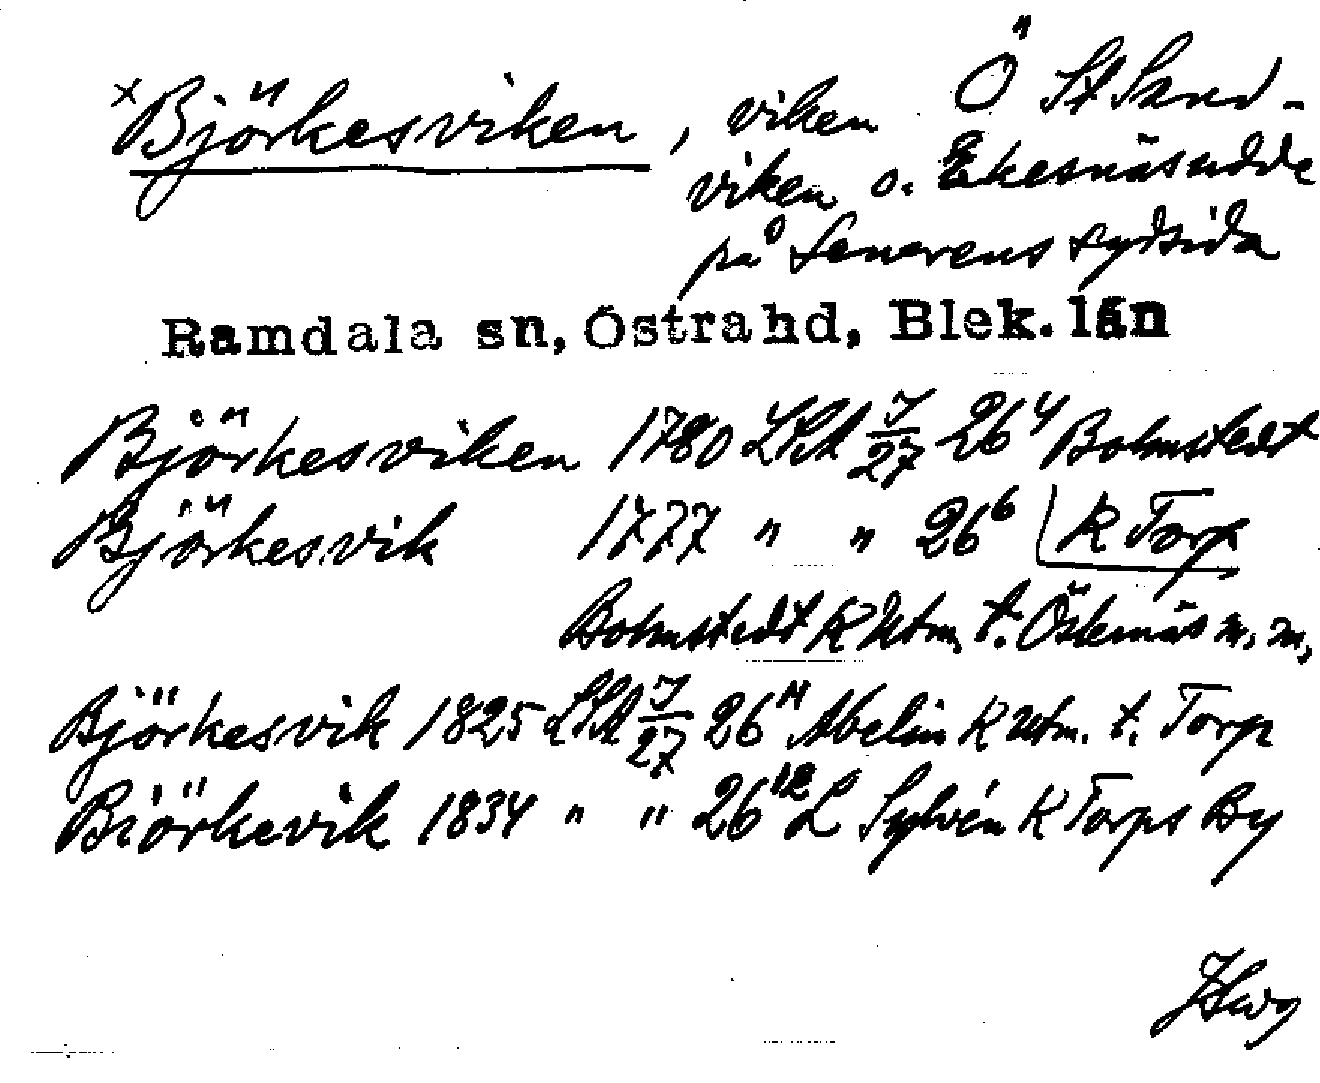 × Björkesviken, viken Ö St Sand-
viken o. Ekesnäsudde
på Senorens sydsida
Ramdala sn, Östra hd, Blek. län
Björkesviken 1780 LSA 7/27 26⁴ Bohnstedt
Björkesvik 1777 " " 26⁶ K Torp
Bohnstedt K Utm. t. Öslenäs m. m,
Björkesvik 1825 LSA 7/27 26¹¹ Abelin K Utm. t. Torp
Biörkevik 1834 " " 26¹² L Sylvén K Torps By